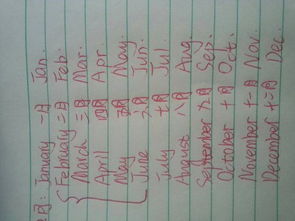 月: January 一月 Jan.
February 二月 Feb.
March 三月 Mar.
April 四月 Apr.
May 五月 May.
June 六月 Jun.
July 七月 Jul
August 八月 Aug.
September 九月 Sep.
October 十月 Oct.
November 十一月 Nov.
December 十二月 Dec.